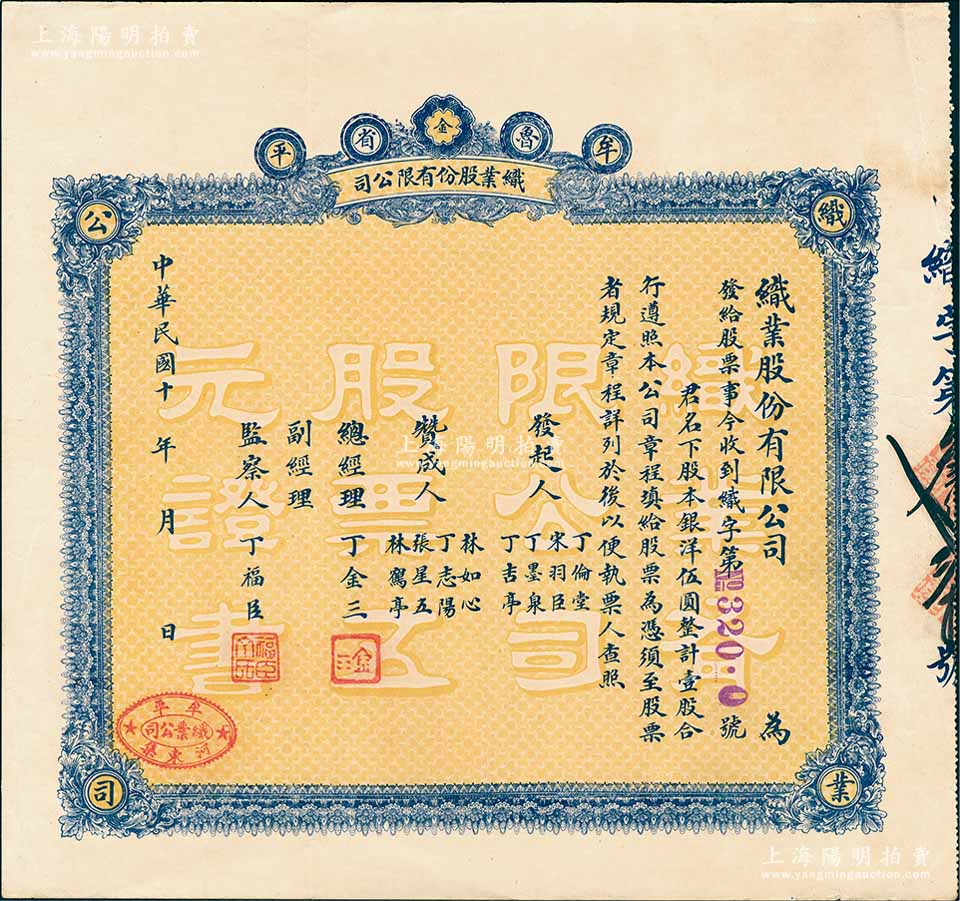 上海陽明拍賣
www.yangmingauction.com
牟魯金省平
織業股份有限公司
織
業
公
司
織業股份有限公司 為
發給股票事今收到織字第 320 號
君名下股本銀洋伍圓整計壹股合
行遵照本公司章程填給股票為憑須至股票
者規定章程詳列於後以便執票人查照
發起人
丁倫堂
宋羽臣
丁墨泉
丁吉亭
贊成人
林如心
丁志陽
張星五
林鶴亭
總經理 丁金三
金三
副經理
監察人 丁福臣
中華民國十 年 月 日
牟平
織業公司
河東集
織業
限公司
股票五
元證書
織字第
號
上海陽明拍賣
www.yangmingauction.com
上海陽明拍賣
www.yangmingauction.com